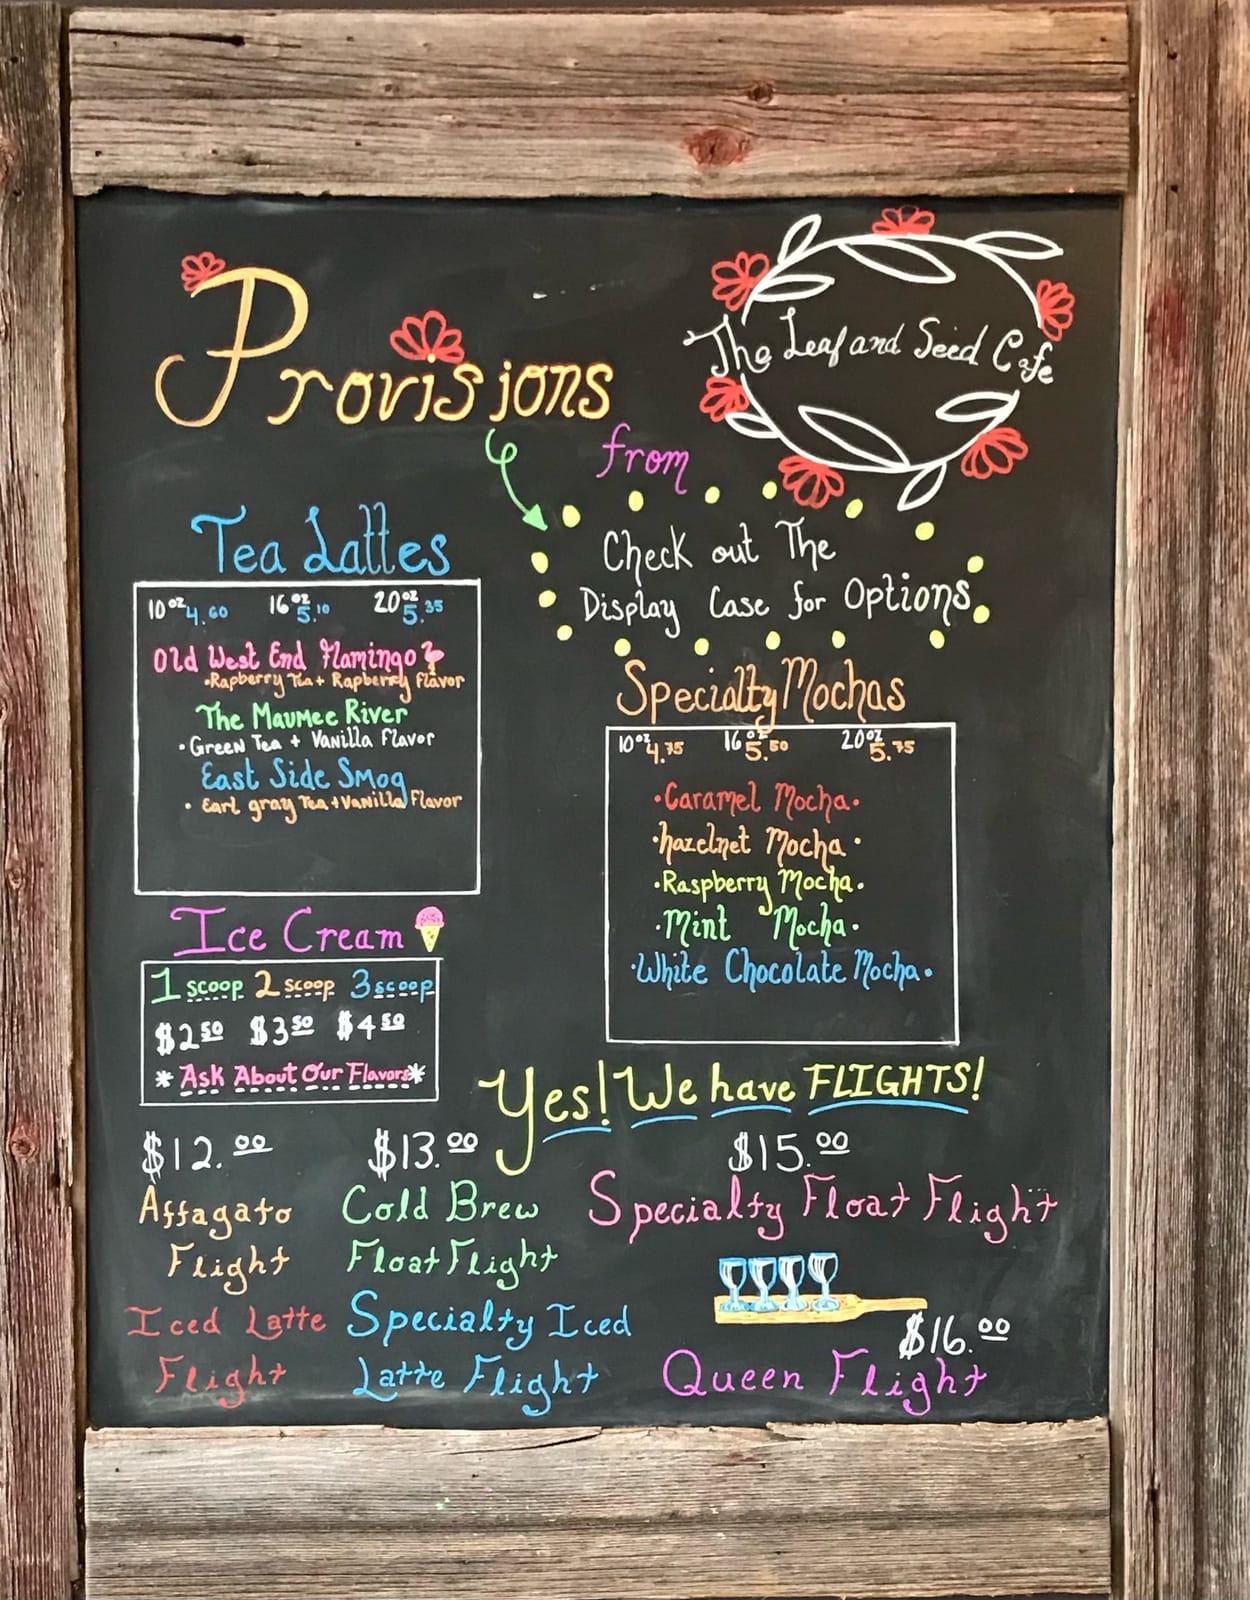 Provisions
from
The Leaf and Seed Cafe
Check out The
Display Case for Options
Tea Lattes
10oz 4.60 16oz 5.10 20oz 5.35
Old West End Flamingo
•Rapberry Tea + Rapberry Flavor
The Maumee River
•Green Tea + Vanilla Flavor
East Side Smog
•Earl gray Tea + Vanilla Flavor
Specialty Mochas
10oz 4.75 16oz 5.50 20oz 5.75
•Caramel Mocha•
•hazelnet Mocha•
•Raspberry Mocha•
•Mint Mocha•
•White Chocolate Mocha•
Ice Cream
1 scoop 2 scoop 3 scoop
$2 50 $3 50 $4 50
*Ask About Our Flavors*
Yes! We have FLIGHTS!
$12.00
Affagato
Flight
Iced Latte
Flight
$13.00
Cold Brew
Float Flight
Specialty Iced
Latte Flight
$15.00
Specialty Float Flight
$16.00
Queen Flight